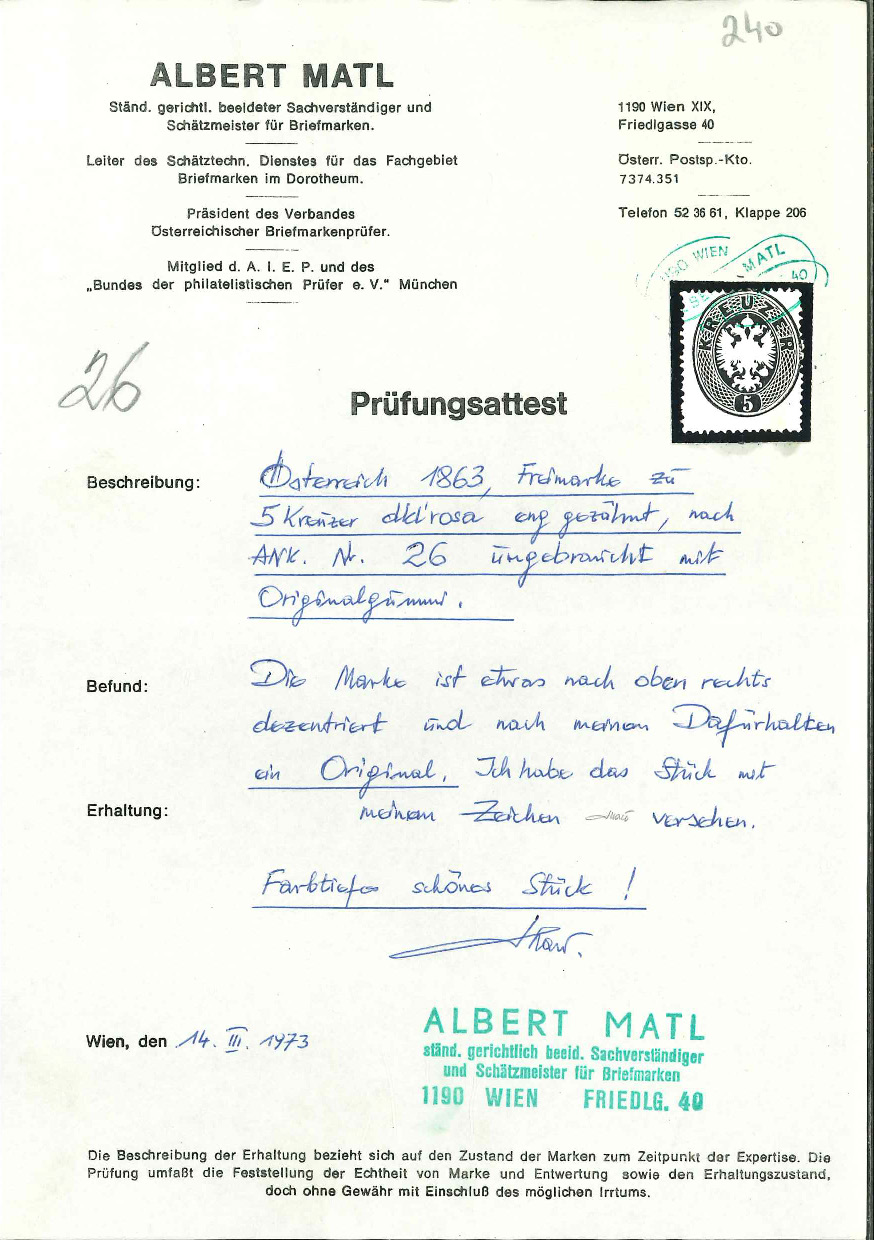 240
ALBERT MATL
Ständ. gerichtl. beeideter Sachverständiger und
Schätzmeister für Briefmarken.
Leiter des Schätztechn. Dienstes für das Fachgebiet
Briefmarken im Dorotheum.
Präsident des Verbandes
Österreichischer Briefmarkenprüfer.
Mitglied d. A. I. E. P. und des
„Bundes der philatelistischen Prüfer e. V.“ München
1190 Wien XIX,
Friedlgasse 40
Österr. Postsp.-Kto.
7374.351
Telefon 52 36 61, Klappe 206
1190 WIEN
MATL
40
KREUZER
5
26
Prüfungsattest
Beschreibung:
Österreich 1863, Freimarke zu
5 Kreuzer dkl'rosa eng gezähnt, nach
ANK. Nr. 26 ungebraucht mit
Originalgummi.
Befund:
Die Marke ist etwas nach oben rechts
dezentriert und nach meinem Dafürhalten
ein Original. Ich habe das Stück mit
Erhaltung:
meinem Zeichen versehen.
Farbtiefes schönes Stück !
Wien, den 14. III. 1973
ALBERT MATL
ständ. gerichtlich beeid. Sachverständiger
und Schätzmeister für Briefmarken
1190 WIEN FRIEDLG. 40
Die Beschreibung der Erhaltung bezieht sich auf den Zustand der Marken zum Zeitpunkt der Expertise. Die
Prüfung umfaßt die Feststellung der Echtheit von Marke und Entwertung sowie den Erhaltungszustand,
doch ohne Gewähr mit Einschluß des möglichen Irrtums.